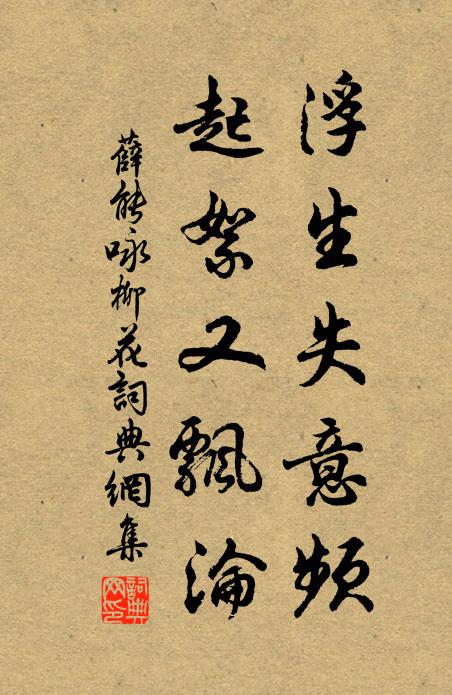 浮生失意頻
起絮又飄淪
薛能咏柳花詞典網集
詞典網印